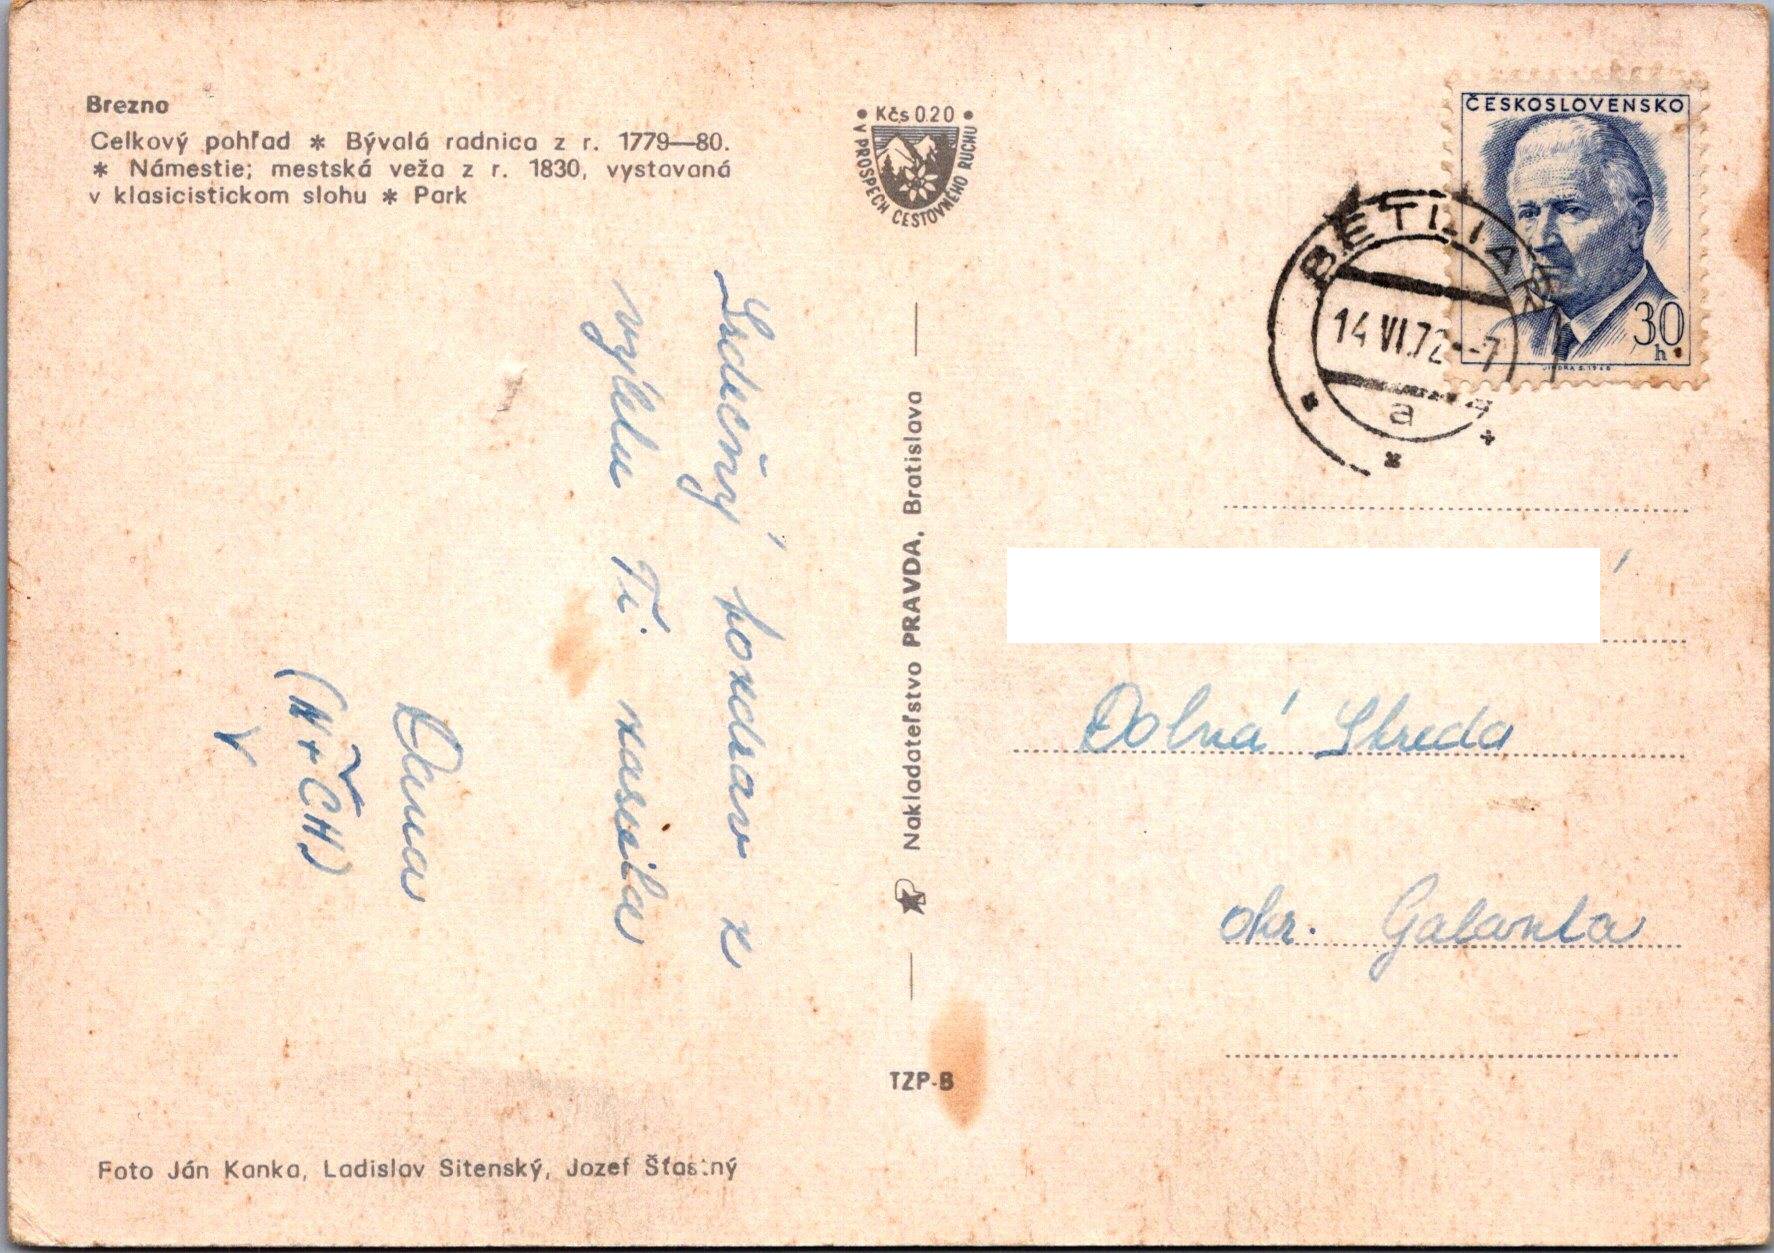 Brezno
Celkový pohľad * Bývalá radnica z r. 1779—80.
* Námestie; mestská veža z r. 1830, vystavaná
v klasicistickom slohu * Park
• Kčs 0.20 •
V PROSPECH CESTOVNÉHO RUCHU
ČESKOSLOVENSKO
30
h
JINDRA S. 1968
BETLIAR
14 VI. 72 -7
a
Srdečný pozdrav z
výletu Ti zaslala
Dana
(N + ČH)
Nakladateľstvo PRAVDA, Bratislava
Dolná Streda
okr. Galanta
TZP-B
Foto Ján Kanka, Ladislav Sitenský, Jozef Šťastný